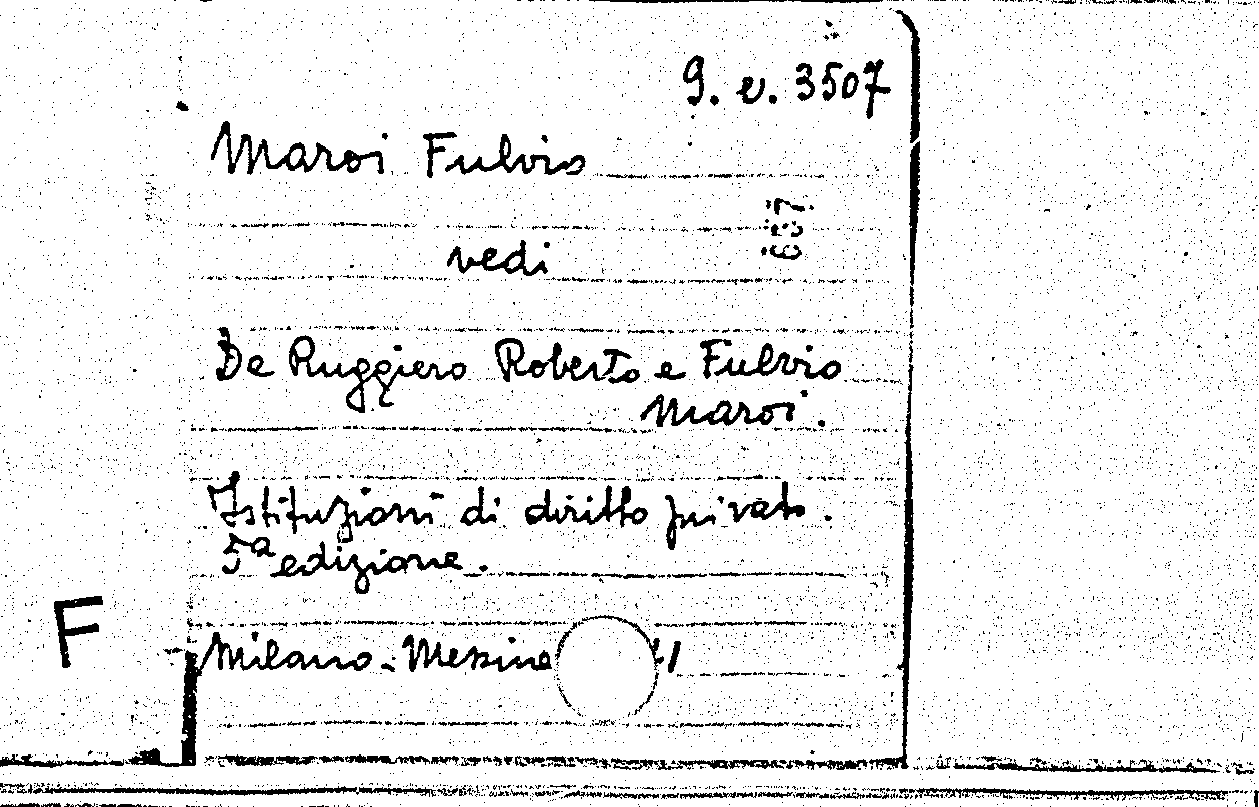 9. v. 3507
Maroi Fulvio
vedi
De Ruggiero Roberto e Fulvio
Maroi.
Istituzioni di diritto privato.
5a edizione.
F
Milano-Messina